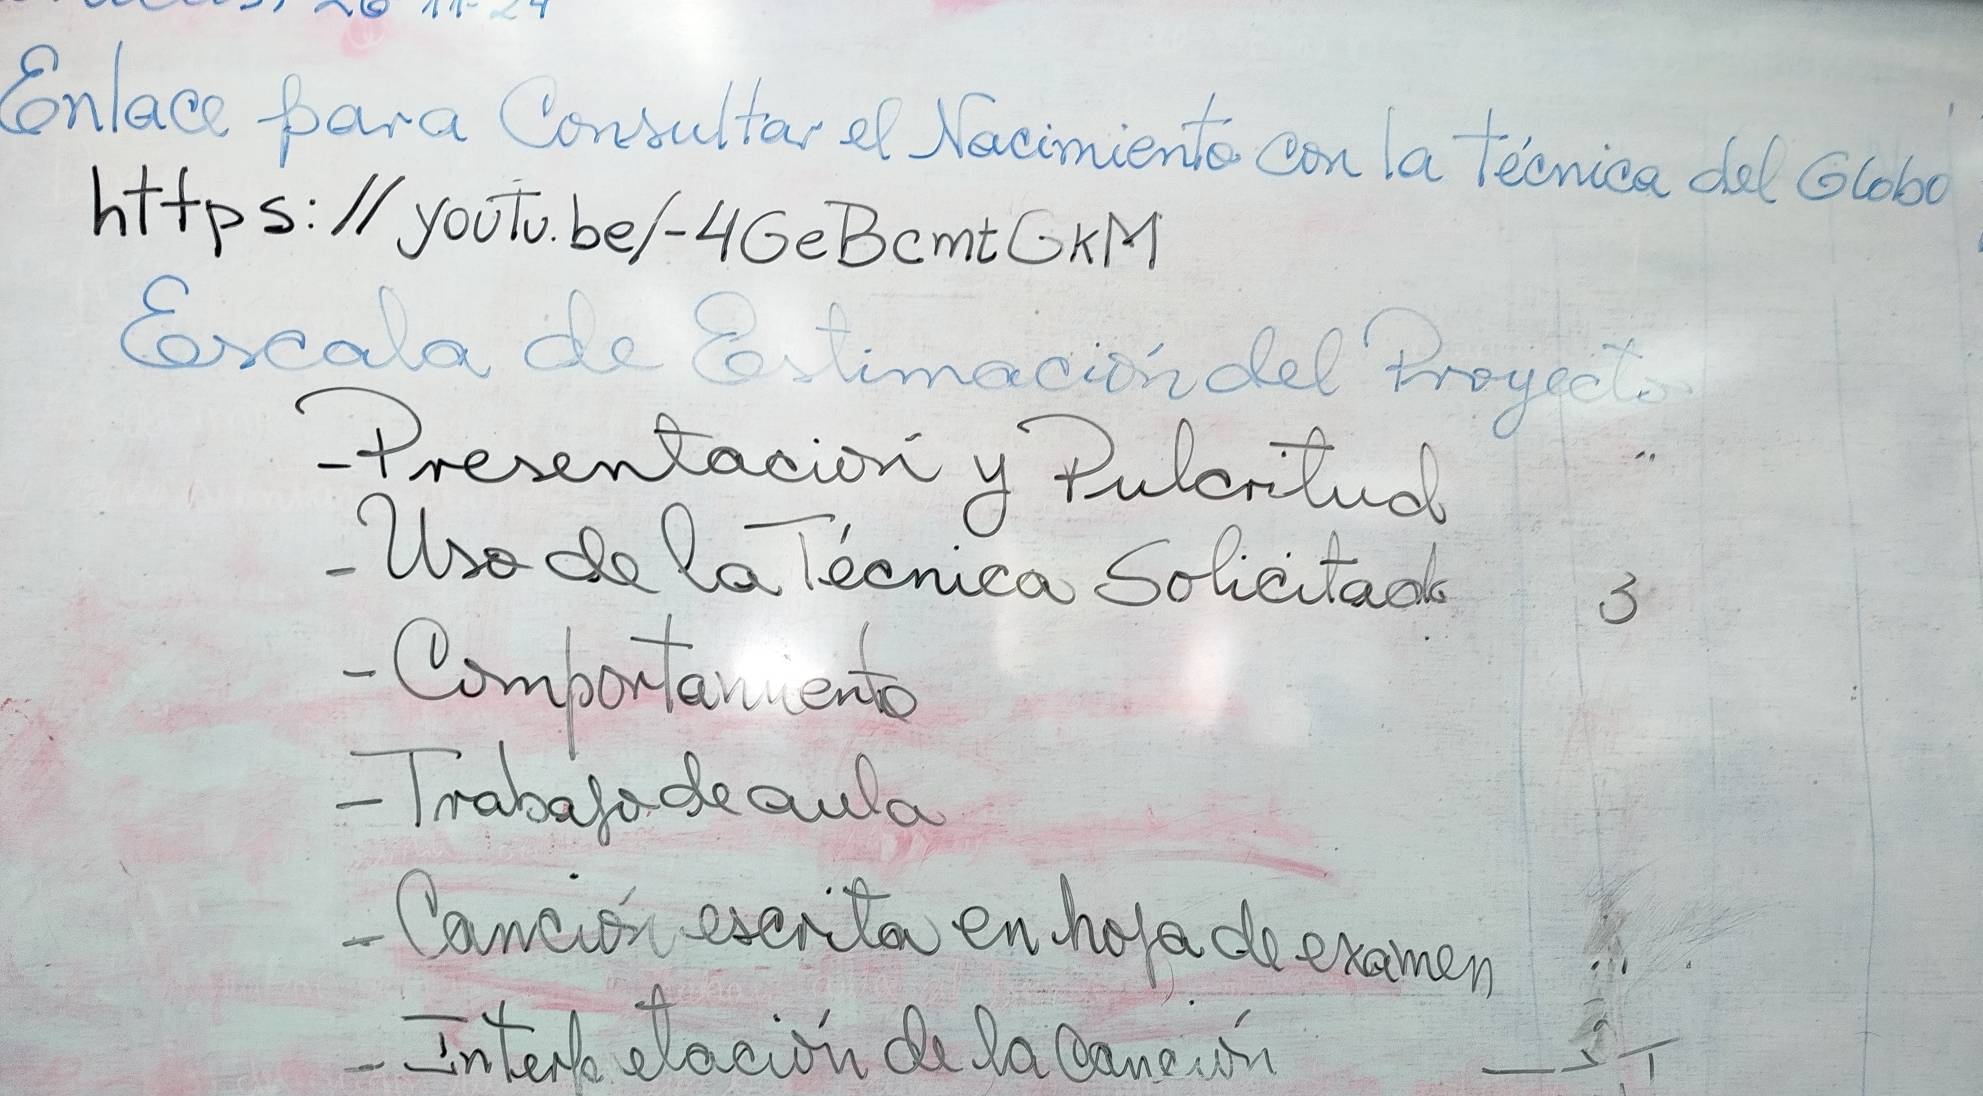 26-11-24
Enlace para Consultar el Nacimiento con la Técnica del Globo
https://youtu.be/-4GeBcmtGkM
Escala de Estimación del Proyecto
- Presentación y Pulcritud
- Uso de la Técnica Solicitada 3
- Comportamiento
- Trabajo de aula
- Canción escrita en hoja de examen
- Interpetación de la Canción